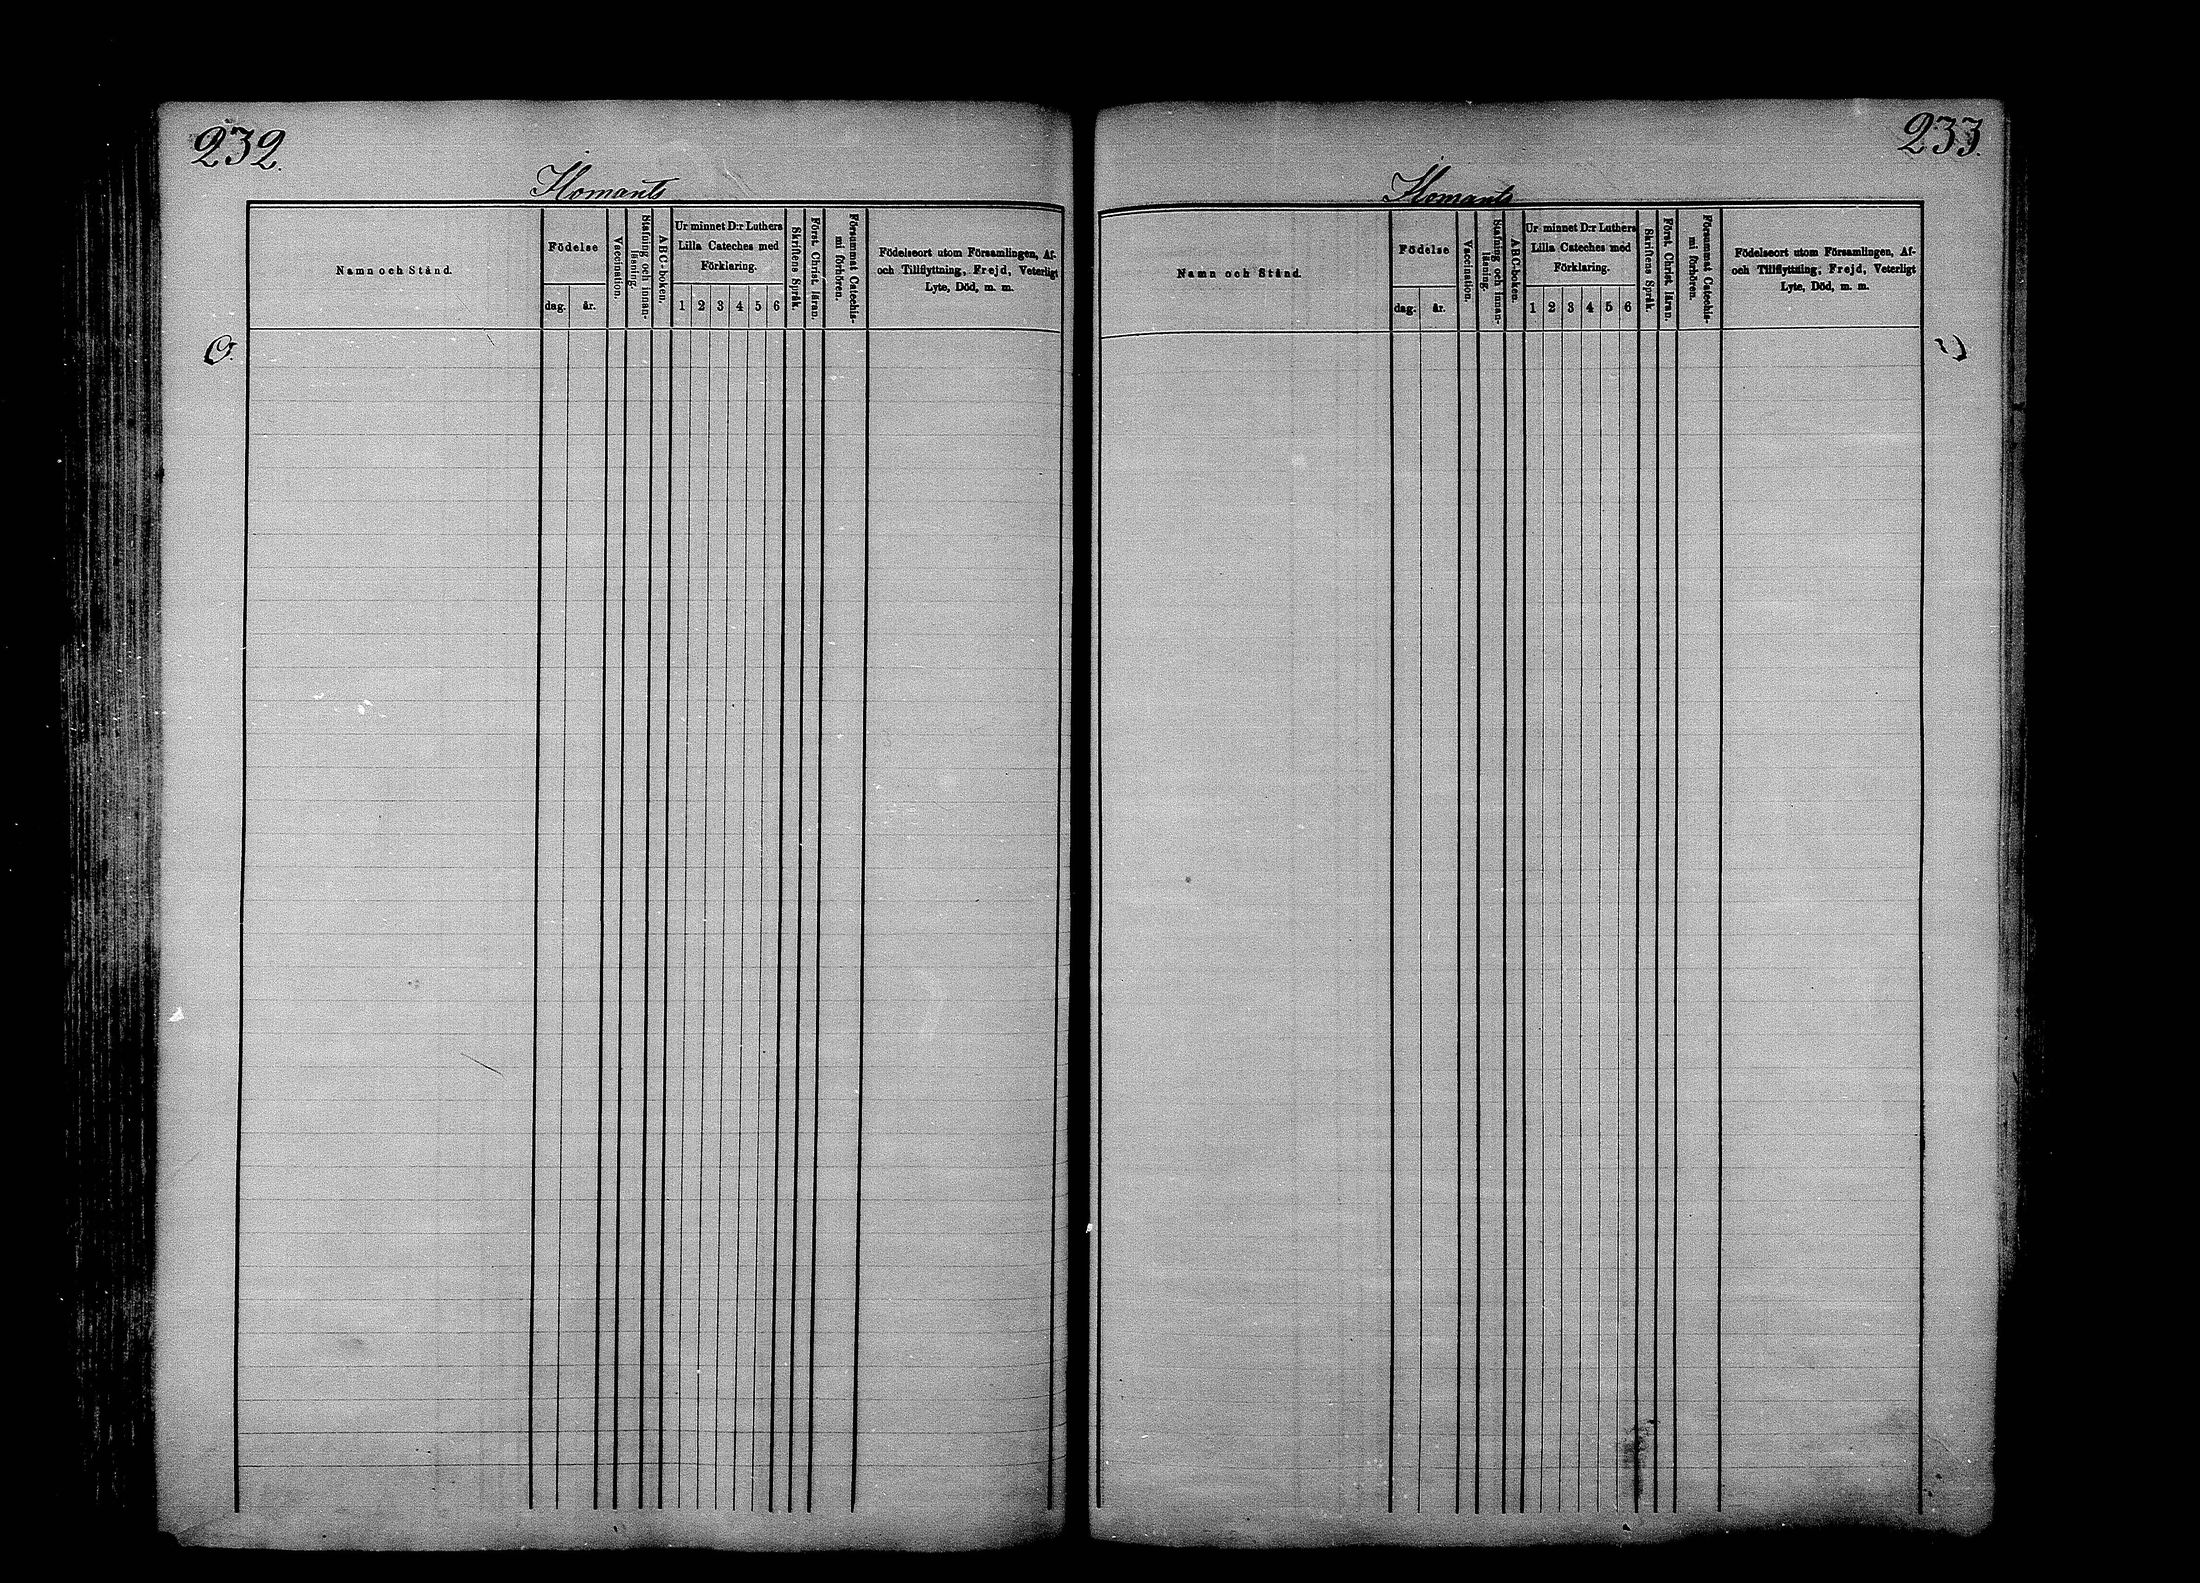 232.
Homants
Namn och Stånd.
Födelse
dag.
år.
Vaccination.
Stafning och innan-
läsning.
ABC-boken.
Ur minnet D:r Luthers
Lilla Cateches med
Förklaring.
1 2 3 4 5 6
Skriftens Språk.
Först. Christ. läran.
Försummat Catechis-
mi förhören.
Födelseort utom Församlingen, Af-
och Tillflyttning, Frejd, Veterligt
Lyte, Död, m. m.
233.
Homants
Namn och Stånd.
Födelse
dag.
år.
Vaccination.
Stafning och innan-
läsning.
ABC-boken.
Ur minnet D:r Luthers
Lilla Cateches med
Förklaring.
1 2 3 4 5 6
Skriftens Språk.
Först. Christ. läran.
Försummat Catechis-
mi förhören.
Födelseort utom Församlingen, Af-
och Tillflyttning, Frejd, Veterligt
Lyte, Död, m. m.